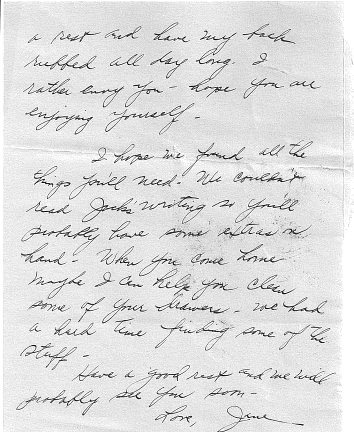 a rest and have my back
rubbed all day long. I
rather envy you - hope you are
enjoying yourself -
I hope we found all the
things you'll need - We couldn't
read Jack's writing so you'll
probably have some extras on
hand - When you come home
maybe I can help you clean
some of your drawers - we had
a hard time finding some of the
stuff -
Have a good rest and we will
probably see you soon -
Love, Jane